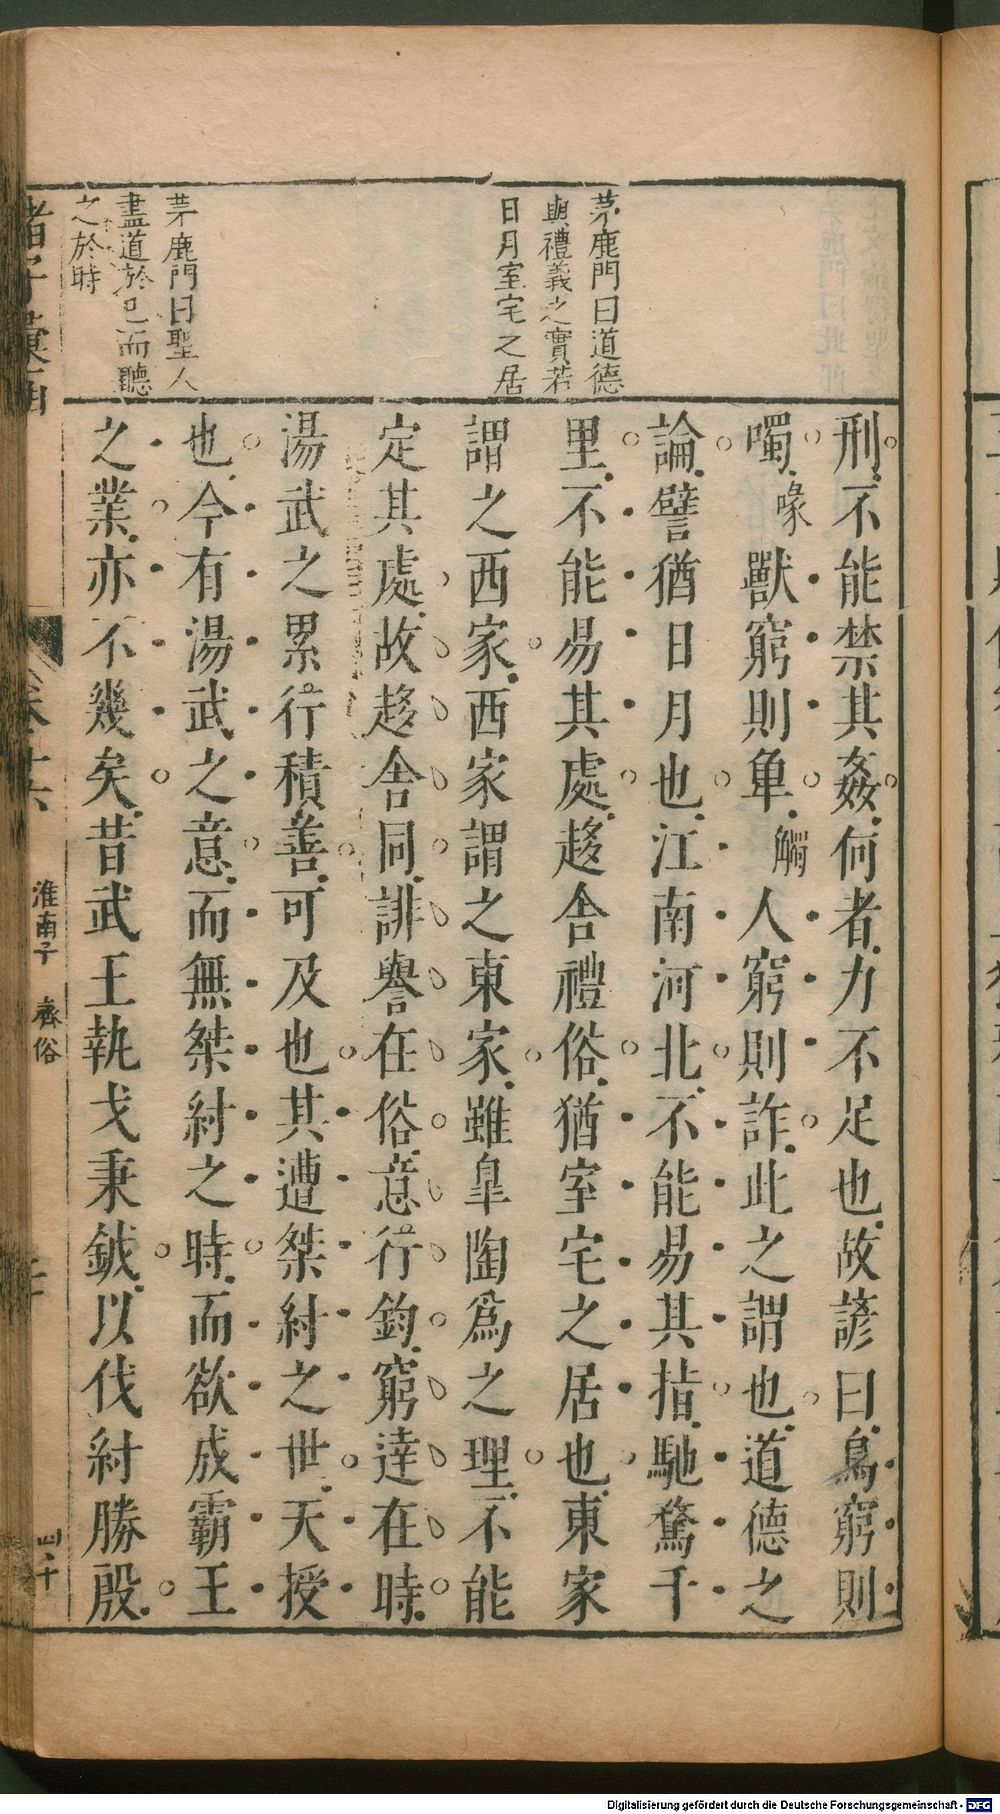 茅鹿門曰道德
與禮義之實若
日月室宅之居
茅鹿門曰聖人
盡道於己而聽
之於時
刑不能禁其姦何者力不足也故諺曰鳥窮則
噣喙獸窮則𧢻觸人窮則詐此之謂也道德之
論譬猶日月也江南河北不能易其指馳騖千
里不能易其處趍舍禮俗猶室宅之居也東家
謂之西家西家謂之東家雖臯陶爲之理不能
定其處故趍舍同誹譽在俗意行鈞窮達在時
湯武之累行積善可及也其遭桀紂之世天授
也今有湯武之意而無桀紂之時而欲成霸王
之業亦不幾矣昔武王執戈秉鉞以伐紂勝殷
淮南子 齊俗
Digitalisierung gefördert durch die Deutsche Forschungsgemeinschaft - DFG